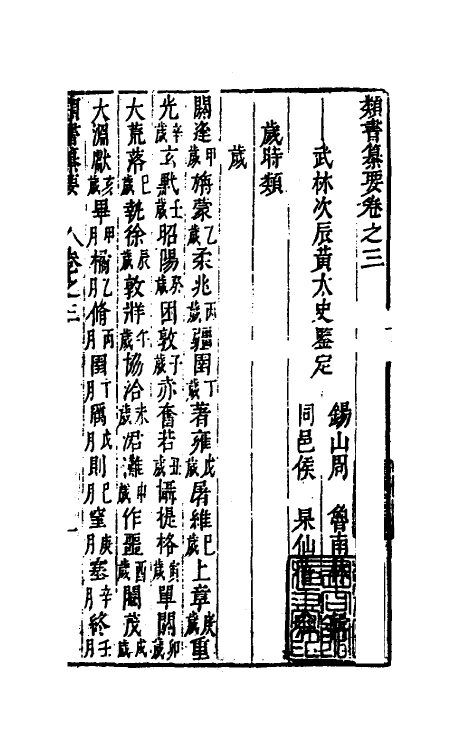 類書纂要卷之三
武林次辰黃太史鑒定
錫山周　魯南
同邑侯　杲仙
歲時類
歲
閼逢甲歲旃蒙乙歲柔兆丙歲彊圉丁歲著雍戊歲屠維己歲上章庚歲重
光辛歲玄黓壬歲昭陽癸歲困敦子歲赤奮若丑歲攝提格寅歲單閼卯歲
大荒落巳歲執徐辰歲敦牂午歲協洽未歲涒灘申歲作噩酉歲閹茂戌歲
大淵獻亥歲畢甲月橘乙月脩丙月圉丁月厲戊月則巳月窒庚月塞辛月終壬月
類書纂要　卷之三　一